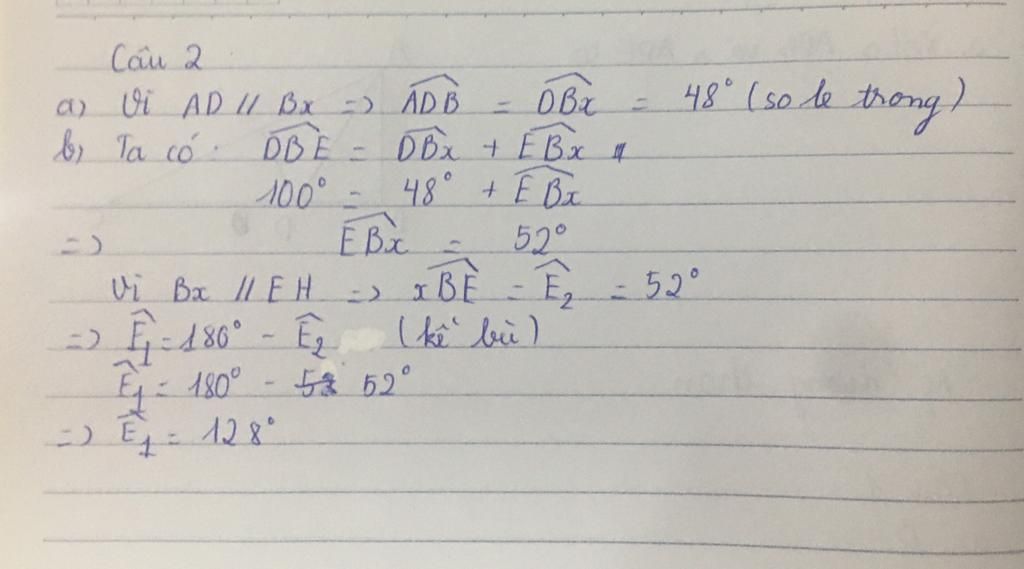 Câu 2:
a) Vì AD // Bx => \widehat{ADB} = \widehat{DBx} = 48° (so le trong)
b) Ta có: \widehat{DBE} = \widehat{DBx} + \widehat{EBx}
100° = 48° + \widehat{EBx}
=> \widehat{EBx} = 52°
Vì Bx // EH => \widehat{xBE} = \widehat{E}₂ = 52°
=> \widehat{E}₁ = 180° - \widehat{E}₂ (kề bù)
\widehat{E}₁ = 180° - 52°
=> \widehat{E}₁ = 128°